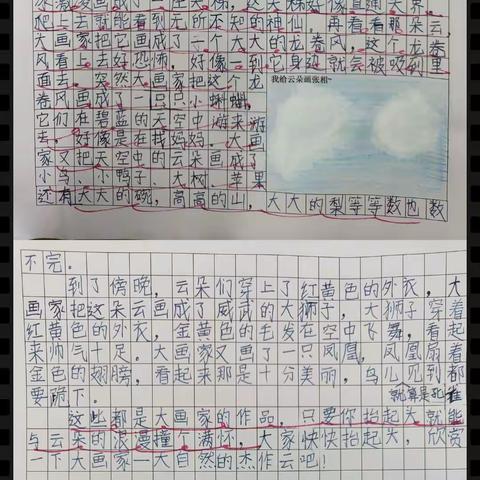 爬上去就能看到无所不知的神仙，再看看那朵云，
大画家把它画成了一个大大的龙卷风，这个龙卷
风看上去好恐怖，好像一到它身边就会被吸到里
面去。突然大画家把这个龙
卷风画成了一只只小蝌蚪，
它们在碧蓝的天空中游来游
去，好像是在找妈妈。大画
家又把天空中的云朵画成了
小鸟、小鸭子、大树、苹果
还有大大的碗，高高的山，大大的梨等等数也数
我给云朵画张相~
不完。
到了傍晚，云朵们穿上了红黄色的外衣，大
画家把这朵云画成了威武的大狮子，大狮子穿着
红黄色的外衣，金黄色的毛发在空中飞舞，看起
来帅气十足。大画家又画了一只凤凰，凤凰扇着
金色的翅膀，看起来那是十分美丽，鸟儿见到都
就算是孔雀
要跪下。
这些都是大画家的作品，只要你抬起头就能
与云朵的浪漫撞个满怀，大家快快抬起头，欣赏
一下大画家—大自然的杰作云吧！